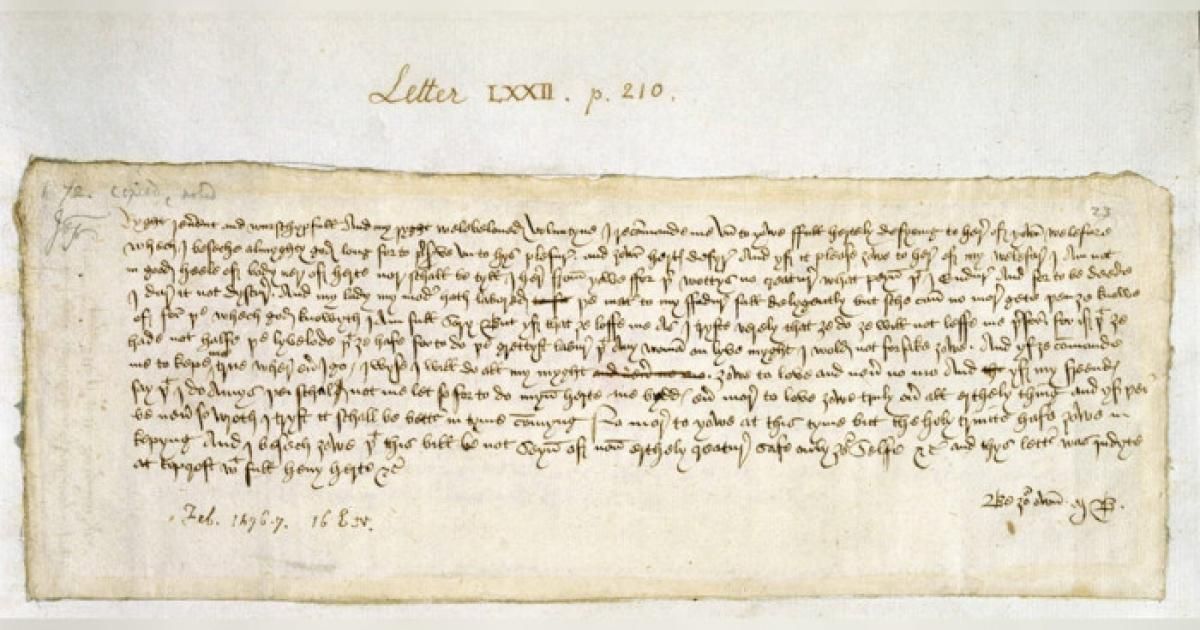 Letter LXXII. p. 210.
72.
23
Ryght reuent and wurschypfull And my ryght welebeloued Voluntyne I recomande me vn to yowe ffull hertely desyring to here of yowr welefare
whech I beseche almyghty god long for to pserve vn to hys plesur and yowr herts desyr And yf it please yowe to here of my welefar I am not
in good heele of body ner of herte nor schall be tyll I her from yowe ffor þr wottys no creatur what peyn þt I endur And for to be deede
I dar it not dyscur And my lady my moder hath labored þe mater to my ffadur full delygently but sche can no mor gete þen ye knowe
of for þe whech god knowyth I am full sory But yf that ye loffe me as I tryste verely that ye do ye will not leffe me þrfor for if þt ye
hade not halfe þe lyvelode þt ye hafe for to do þe grettyst labur þt any woman on lyve myght I wold not forsake yowe And yf ye comande
me to kepe me true wher eur I go I wyse I will do all my myght yowe to love and neur no mo And yf my freends
say þt I do amys þei schal not me let so for to do myn herte me bydds eur mor to love yowe truly our all erthely thing and yf þei
be neur so wroth I tryst it schall be bettr in tyme comyng No mor to yowe at this tyme but the holy trinite hafe yowe in
kepyng And I besech yowe þt this bill be not seyn of non erthely creatur safe only yor selfe &c and thys lettr was indyte
at Topcroft wt full hevy herte &c
Be yor own M B.
Feb. 1476-7. 16 E.